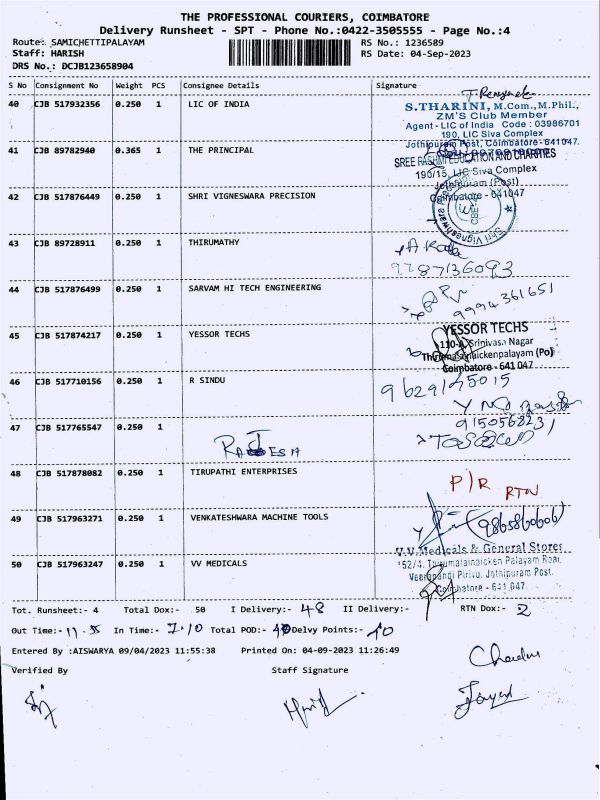 THE PROFESSIONAL COURIERS, COIMBATORE
Delivery Runsheet - SPT - Phone No.:0422-3505555 - Page No.:4
Route: SAMICHETTIPALAYAM
RS No.: 1236589
Staff: HARISH
RS Date: 04-Sep-2023
DRS No.: DCJB123658904
S No Consignment No Weight PCS Consignee Details Signature
40 CJB 517932356 0.250 1 LIC OF INDIA
S.THARINI, M.Com.,M.Phil.,
ZM'S Club Member
Agent - LIC of India Code : 03986701
190, LIC Siva Complex
Jothipuram Post, Coimbatore-641047.
41 CJB 89782940 0.365 1 THE PRINCIPAL
SREE RASHMI EDUCATION AND CHARITIES
190/15, LIC Siva Complex
Jothipuram (Post)
Coimbatore - 641047
42 CJB 517876449 0.250 1 SHRI VIGNESWARA PRECISION
43 CJB 89728911 0.250 1 THIRUMATHY
9787136093
44 CJB 517876499 0.250 1 SARVAM HI TECH ENGINEERING
9994361651
45 CJB 517874217 0.250 1 YESSOR TECHS
YESSOR TECHS
110-A, Srinivasa Nagar
Thirumalainaickenpalayam (Po)
Coimbatore - 641 047
46 CJB 517710156 0.250 1 R SINDU
9629145015
47 CJB 517765547 0.250 1
9150568231
48 CJB 517878082 0.250 1 TIRUPATHI ENTERPRISES
P/R RTN
49 CJB 517963271 0.250 1 VENKATESHWARA MACHINE TOOLS
(9865860606)
50 CJB 517963247 0.250 1 VV MEDICALS
V.V.Medicals & General Stores
152/4, Thirumalainaicken Palayam Road,
Veerapandi Pirivu, Jothipuram Post,
Coimbatore - 641 047
Tot. Runsheet:- 4 Total Dox:- 50 I Delivery:- 48 II Delivery:- RTN Dox:- 2
Out Time:- 11.55 In Time:- 7.10 Total POD:- 40 Delvy Points:- 40
Entered By :AISWARYA 09/04/2023 11:55:38 Printed On: 04-09-2023 11:26:49
Verified By Staff Signature